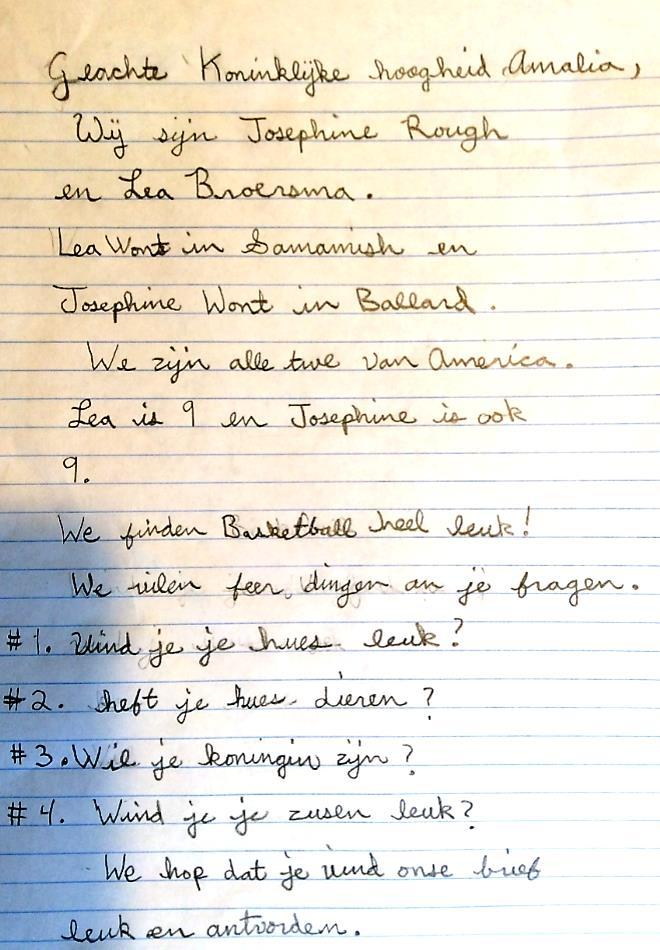 Geachte Koninklijke hoogheid Amalia,
Wij sijn Josephine Rough
en Lea Broersma.
Lea Wont in Samamish en
Josephine Wont in Ballard.
We zijn alle twe van America.
Lea is 9 en Josephine is ook
9.
We finden Basketball heel leuk!
We wilen feer dingen an je fragen.
#1. Vind je je hues leuk?
#2. heft je hues dieren?
#3. Wil je koningin zijn?
#4. Wind je je zusen leuk?
We hop dat je vind onse brief
leuk en antvorden.